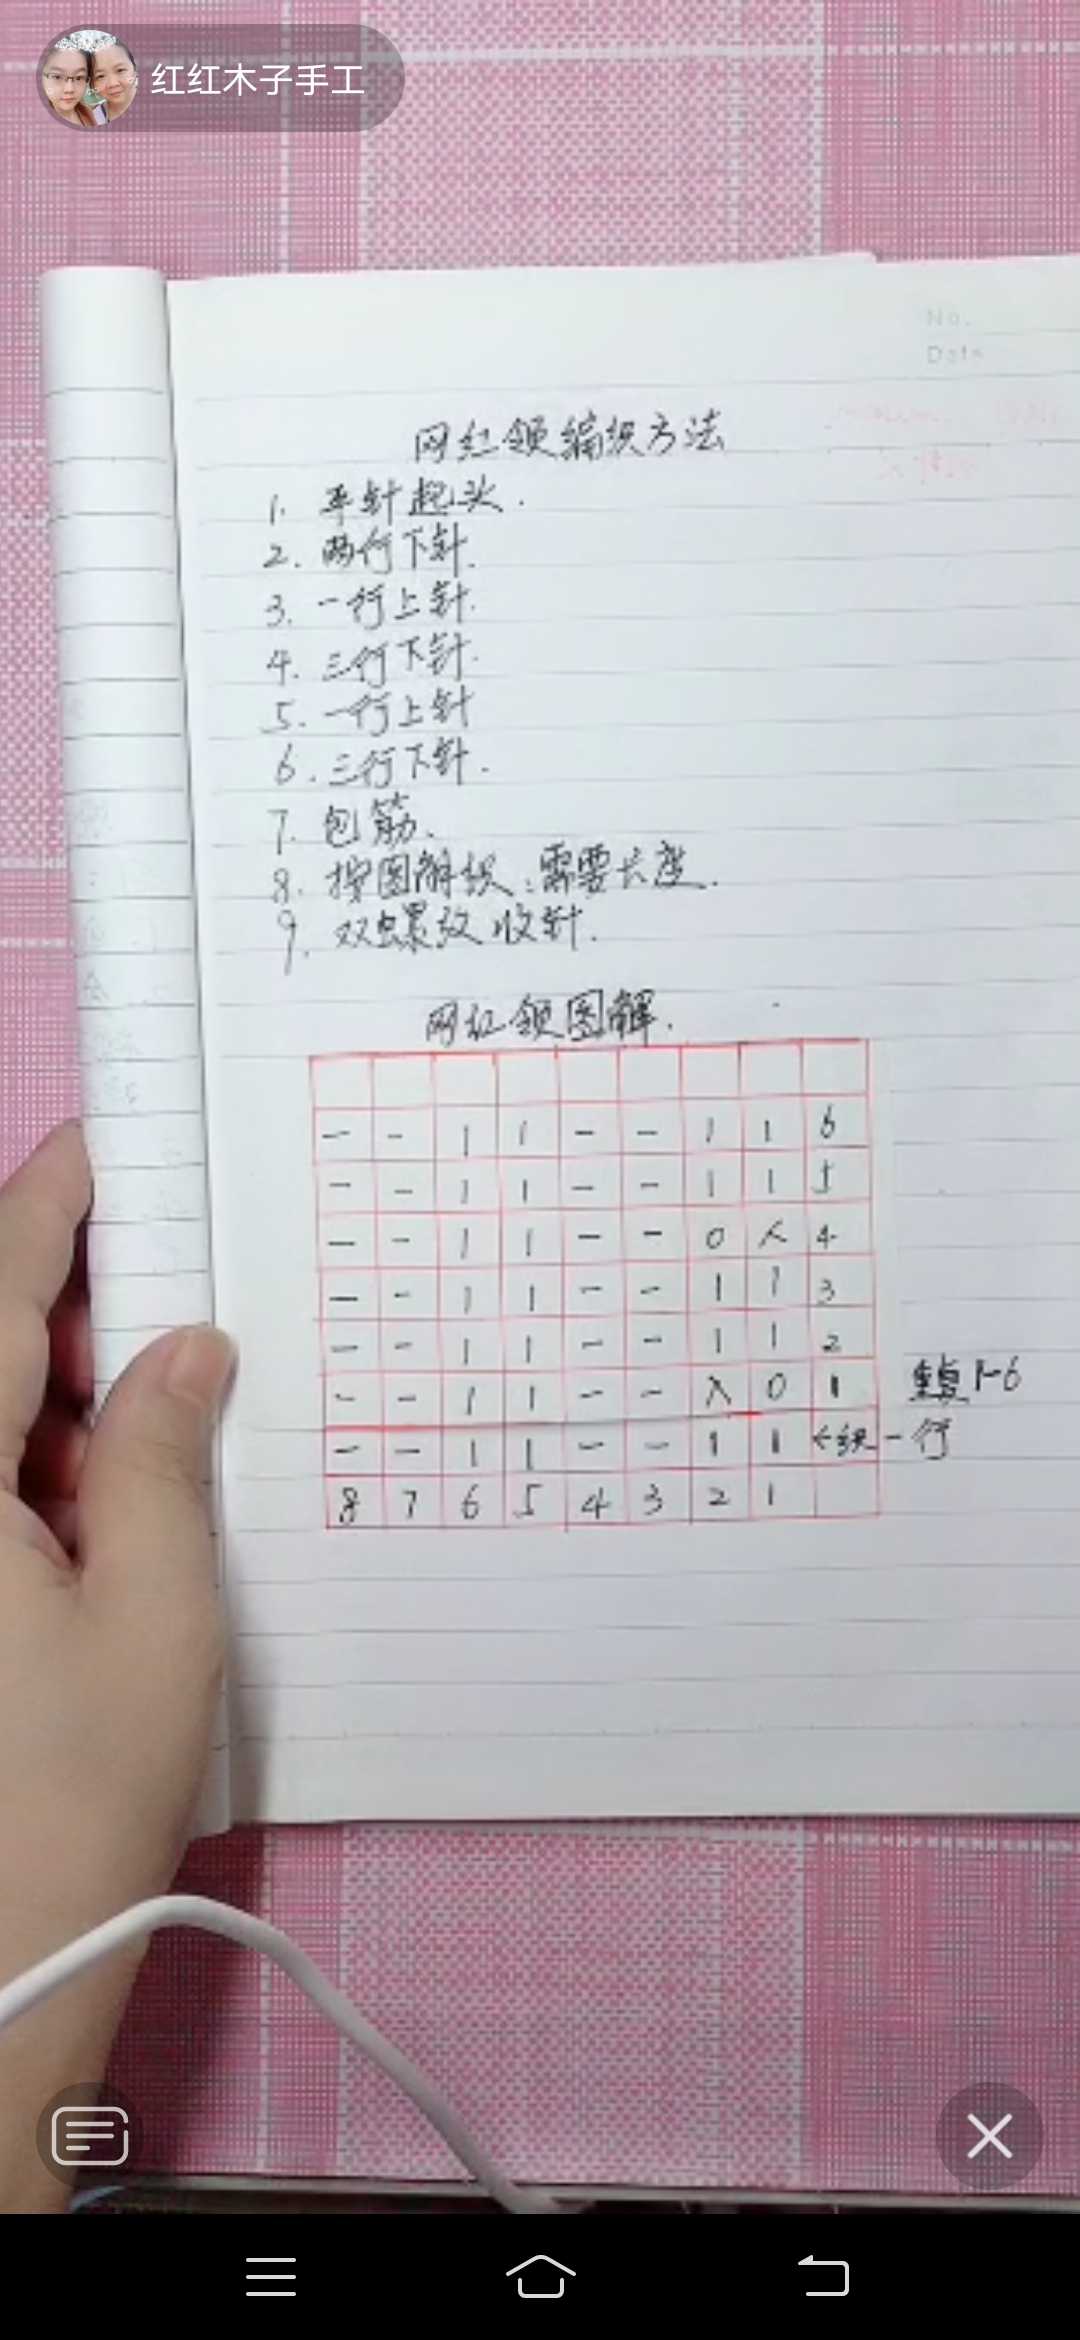 红红木子手工
No.
Date
网红领编织方法
1. 平针起头.
2. 两行下针.
3. 一行上针.
4. 三行下针.
5. 一行上针
6. 三行下针.
7. 包筋.
8. 按图解织:需要长度.
9. 双螺纹收针.
网红领图解.
— — | | — — | | 6
— — | | — — | | 5
— — | | — — O 人 4
— — | | — — | | 3
— — | | — — | | 2
— — | | — — 入 O 1 重复1-6
— — | | — — | | ←织一行
8 7 6 5 4 3 2 1